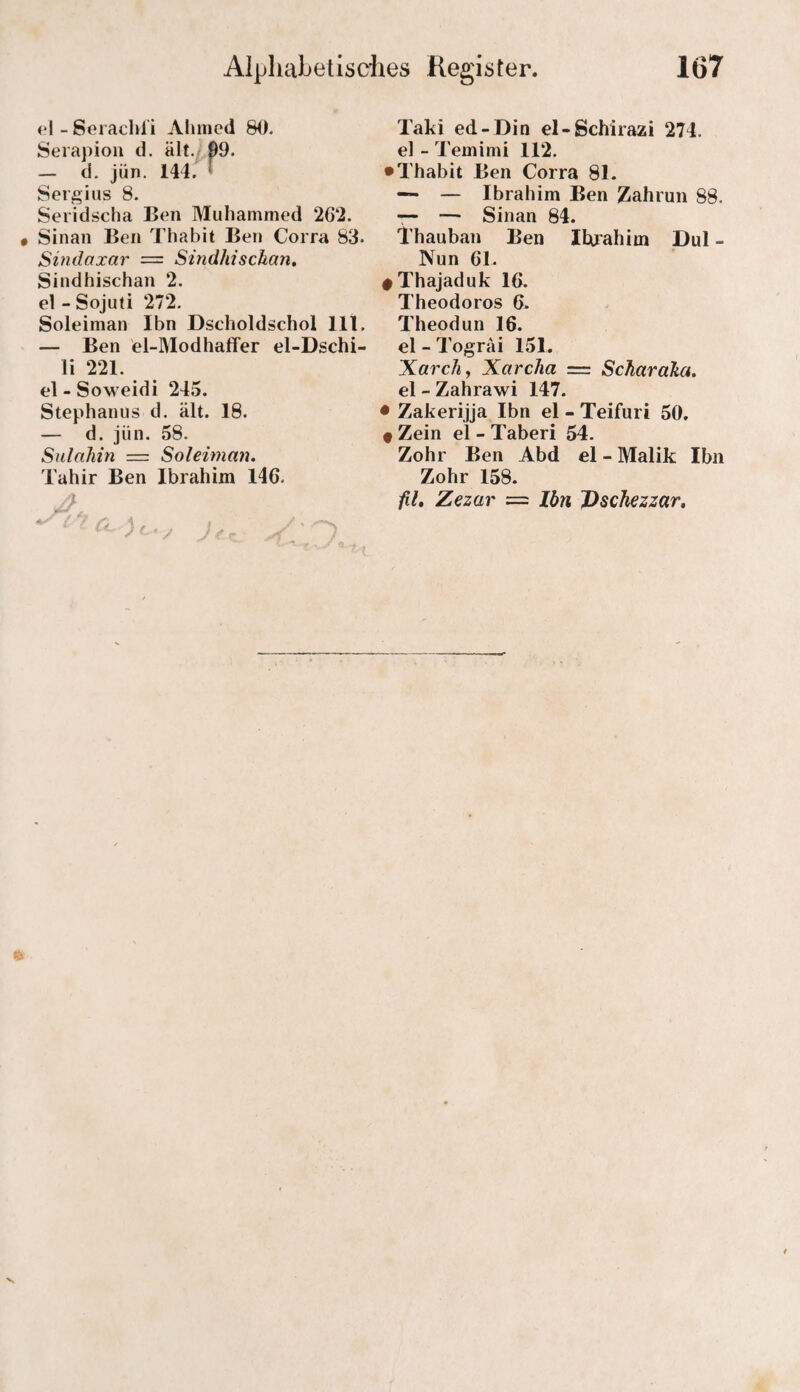 Alphabetisches Register. 167
el - Serachfi Ahmed 80.
Serapion d. ält. 99.
— d. jün. 144.
Sergius 8.
Seridscha Ben Muhammed 262.
Sinan Ben Thabit Ben Corra 83.
Sindaxar = Sindhischan.
Sindhischan 2.
el - Sojuti 272.
Soleiman Ibn Dscholdschol 111.
— Ben el-Modhaffer el-Dschi-
li 221.
el - Soweidi 245.
Stephanus d. ält. 18.
— d. jün. 58.
Sulahin = Soleiman.
Tahir Ben Ibrahim 146.
Taki ed-Din el-Schirazi 274.
el - Temimi 112.
Thabit Ben Corra 81.
— — Ibrahim Ben Zahrun 88.
— — Sinan 84.
Thauban Ben Ibrahim Dul-
Nun 61.
Thajaduk 16.
Theodoros 6.
Theodun 16.
el - Togrài 151.
Xarch, Xarcha = Scharaka.
el - Zahrawi 147.
Zakerijja Ibn el - Teifuri 50.
Zein el - Taberi 54.
Zohr Ben Abd el - Malik Ibn
Zohr 158.
fil. Zezar = Ibn Dschezzar.